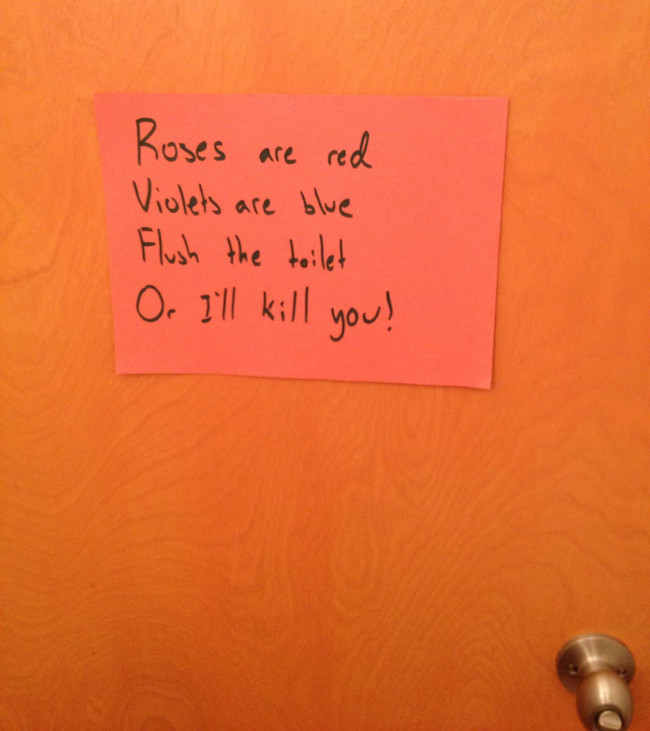 Roses are red
Violets are blue
Flush the toilet
Or I'll kill you!